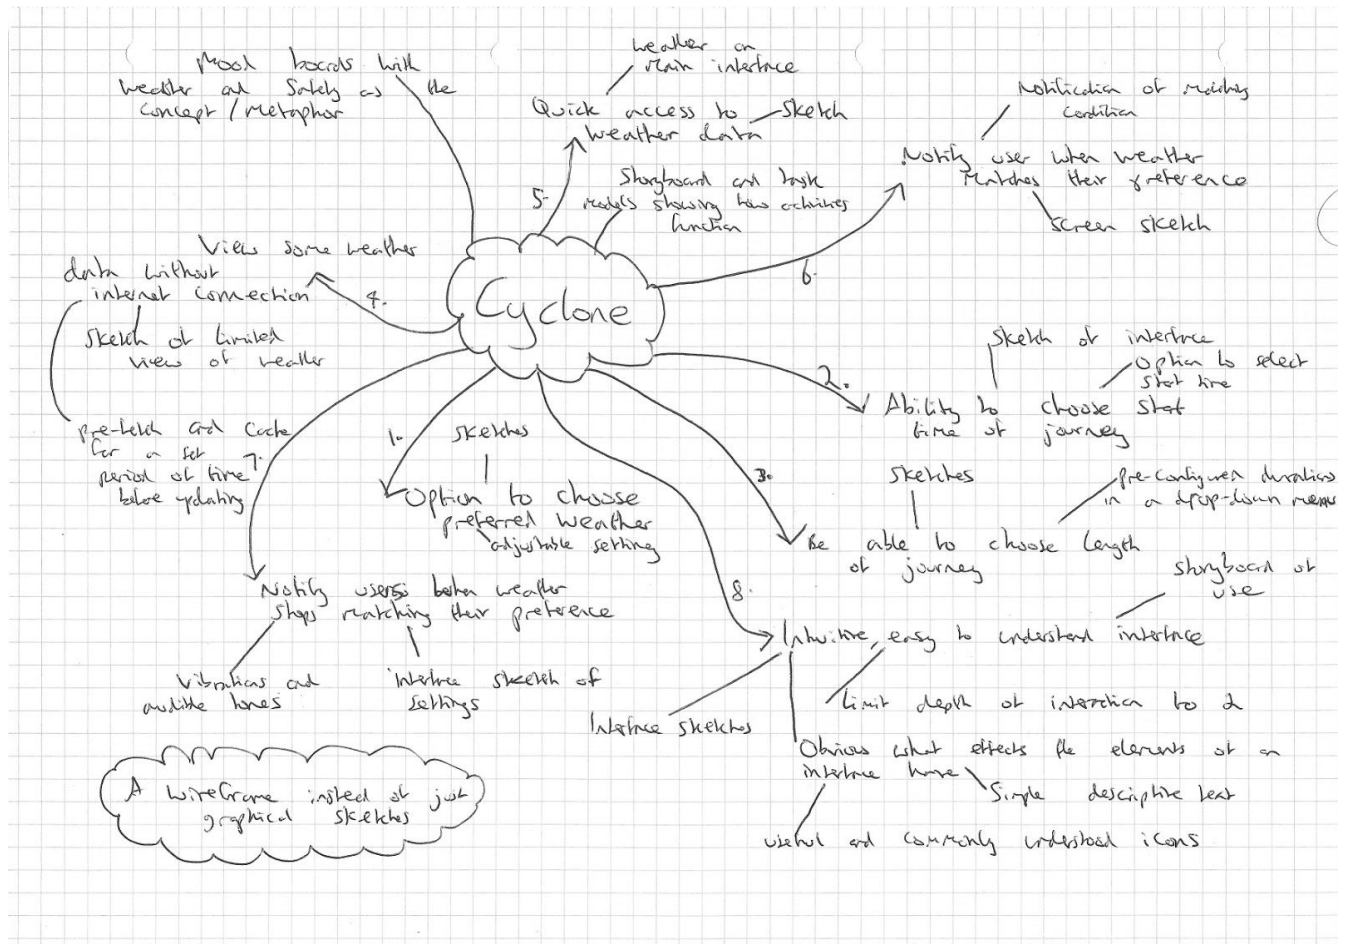 Mood boards with
weather and safety as the
concept / metaphor
weather on
main interface
Quick access to
weather data
sketch
5.
Storyboard and task
models showing how activities
function
Notification of matching
condition
Notify user when weather
matches their preference
screen sketch
6.
View some weather
data without
internet connection
4.
sketch of limited
view of weather
pre-fetch and cache
for a set
period of time
before updating
Cyclone
2.
Sketch of interface
option to select
start time
Ability to choose start
time of journey
3.
sketches
pre-configured durations
in a drop-down menu
Be able to choose length
of journey
1.
sketches
Option to choose
preferred weather
adjustable setting
7.
Notify users when weather
stops matching their preference
Vibrations and
audible tones
interface sketch of
settings
8.
storyboard of
use
Intuitive, easy to understand interface
Interface sketches
Limit depth of interaction to 2
Obvious what effects the elements of an
interface have
Simple descriptive text
useful and commonly understood icons
A wireframe instead of just
graphical sketches